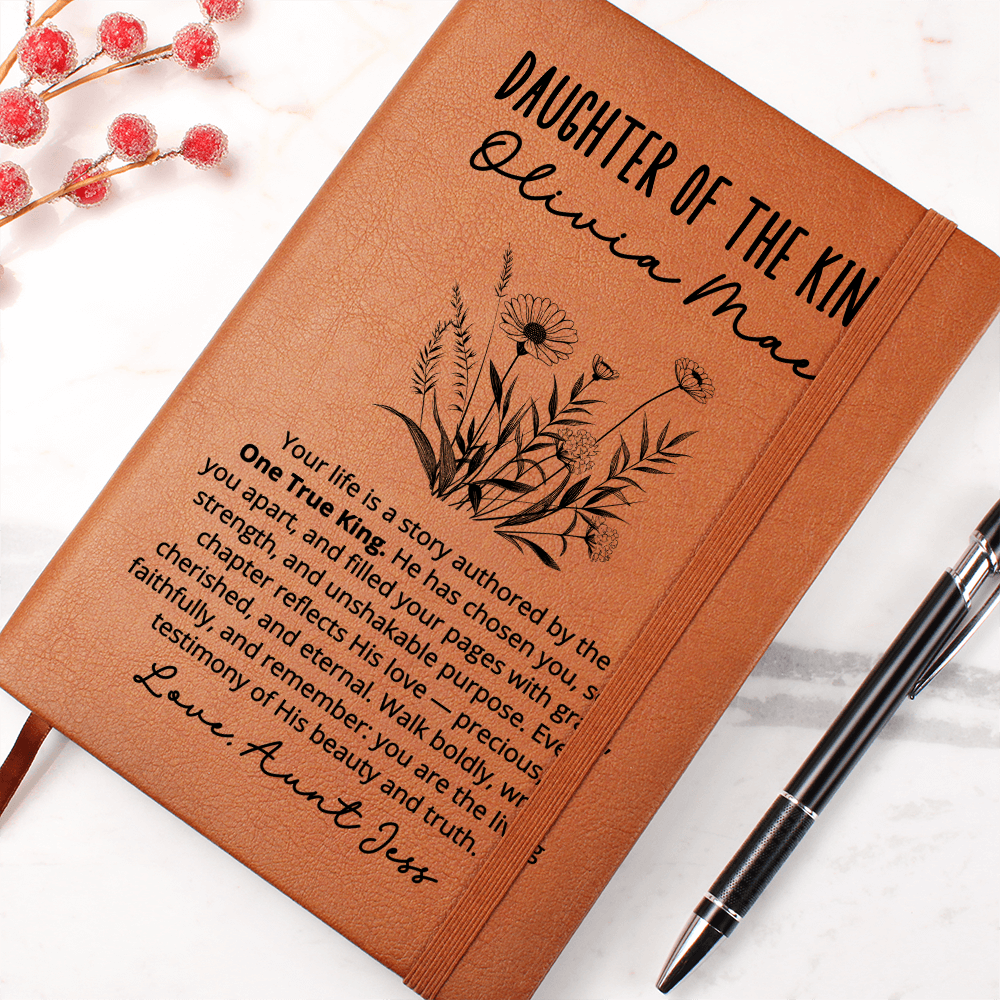 DAUGHTER OF THE KIN
Olivia Mae
Your life is a story authored by the
One True King. He has chosen you, s
you apart, and filled your pages with gra
strength, and unshakable purpose. Eve
chapter reflects His love — precious,
cherished, and eternal. Walk boldly, wr
faithfully, and remember: you are the liv g
testimony of His beauty and truth.
Love, Aunt Jess